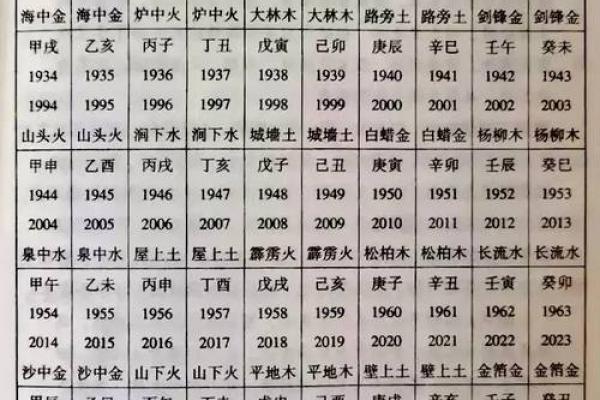 海中金 海中金 炉中火 炉中火 大林木 大林木 路旁土 路旁土 剑锋金 剑锋金
甲戌 乙亥 丙子 丁丑 戊寅 己卯 庚辰 辛巳 壬午 癸未
1934 1935 1936 1937 1938 1939 1940 1941 1942 1943
1994 1995 1996 1997 1998 1999 2000 2001 2002 2003
山头火 山头火 涧下水 涧下水 城墙土 城墙土 白蜡金 白蜡金 杨柳木 杨柳木
甲申 乙酉 丙戌 丁亥 戊子 己丑 庚寅 辛卯 壬辰 癸巳
1944 1945 1946 1947 1948 1949 1950 1951 1952 1953
2004 2005 2006 2007 2008 2009 2010 2011 2012 2013
泉中水 泉中水 屋上土 屋上土 霹雳火 霹雳火 松柏木 松柏木 长流水 长流水
甲午 乙未 丙申 丁酉 戊戌 己亥 庚子 辛丑 壬寅 癸卯
1954 1955 1956 1957 1958 1959 1960 1961 1962 1963
2014 2015 2016 2017 2018 2019 2020 2021 2022 2023
沙中金 沙中金 山下火 山下火 平地木 平地木 壁上土 壁上土 金箔金 金箔金